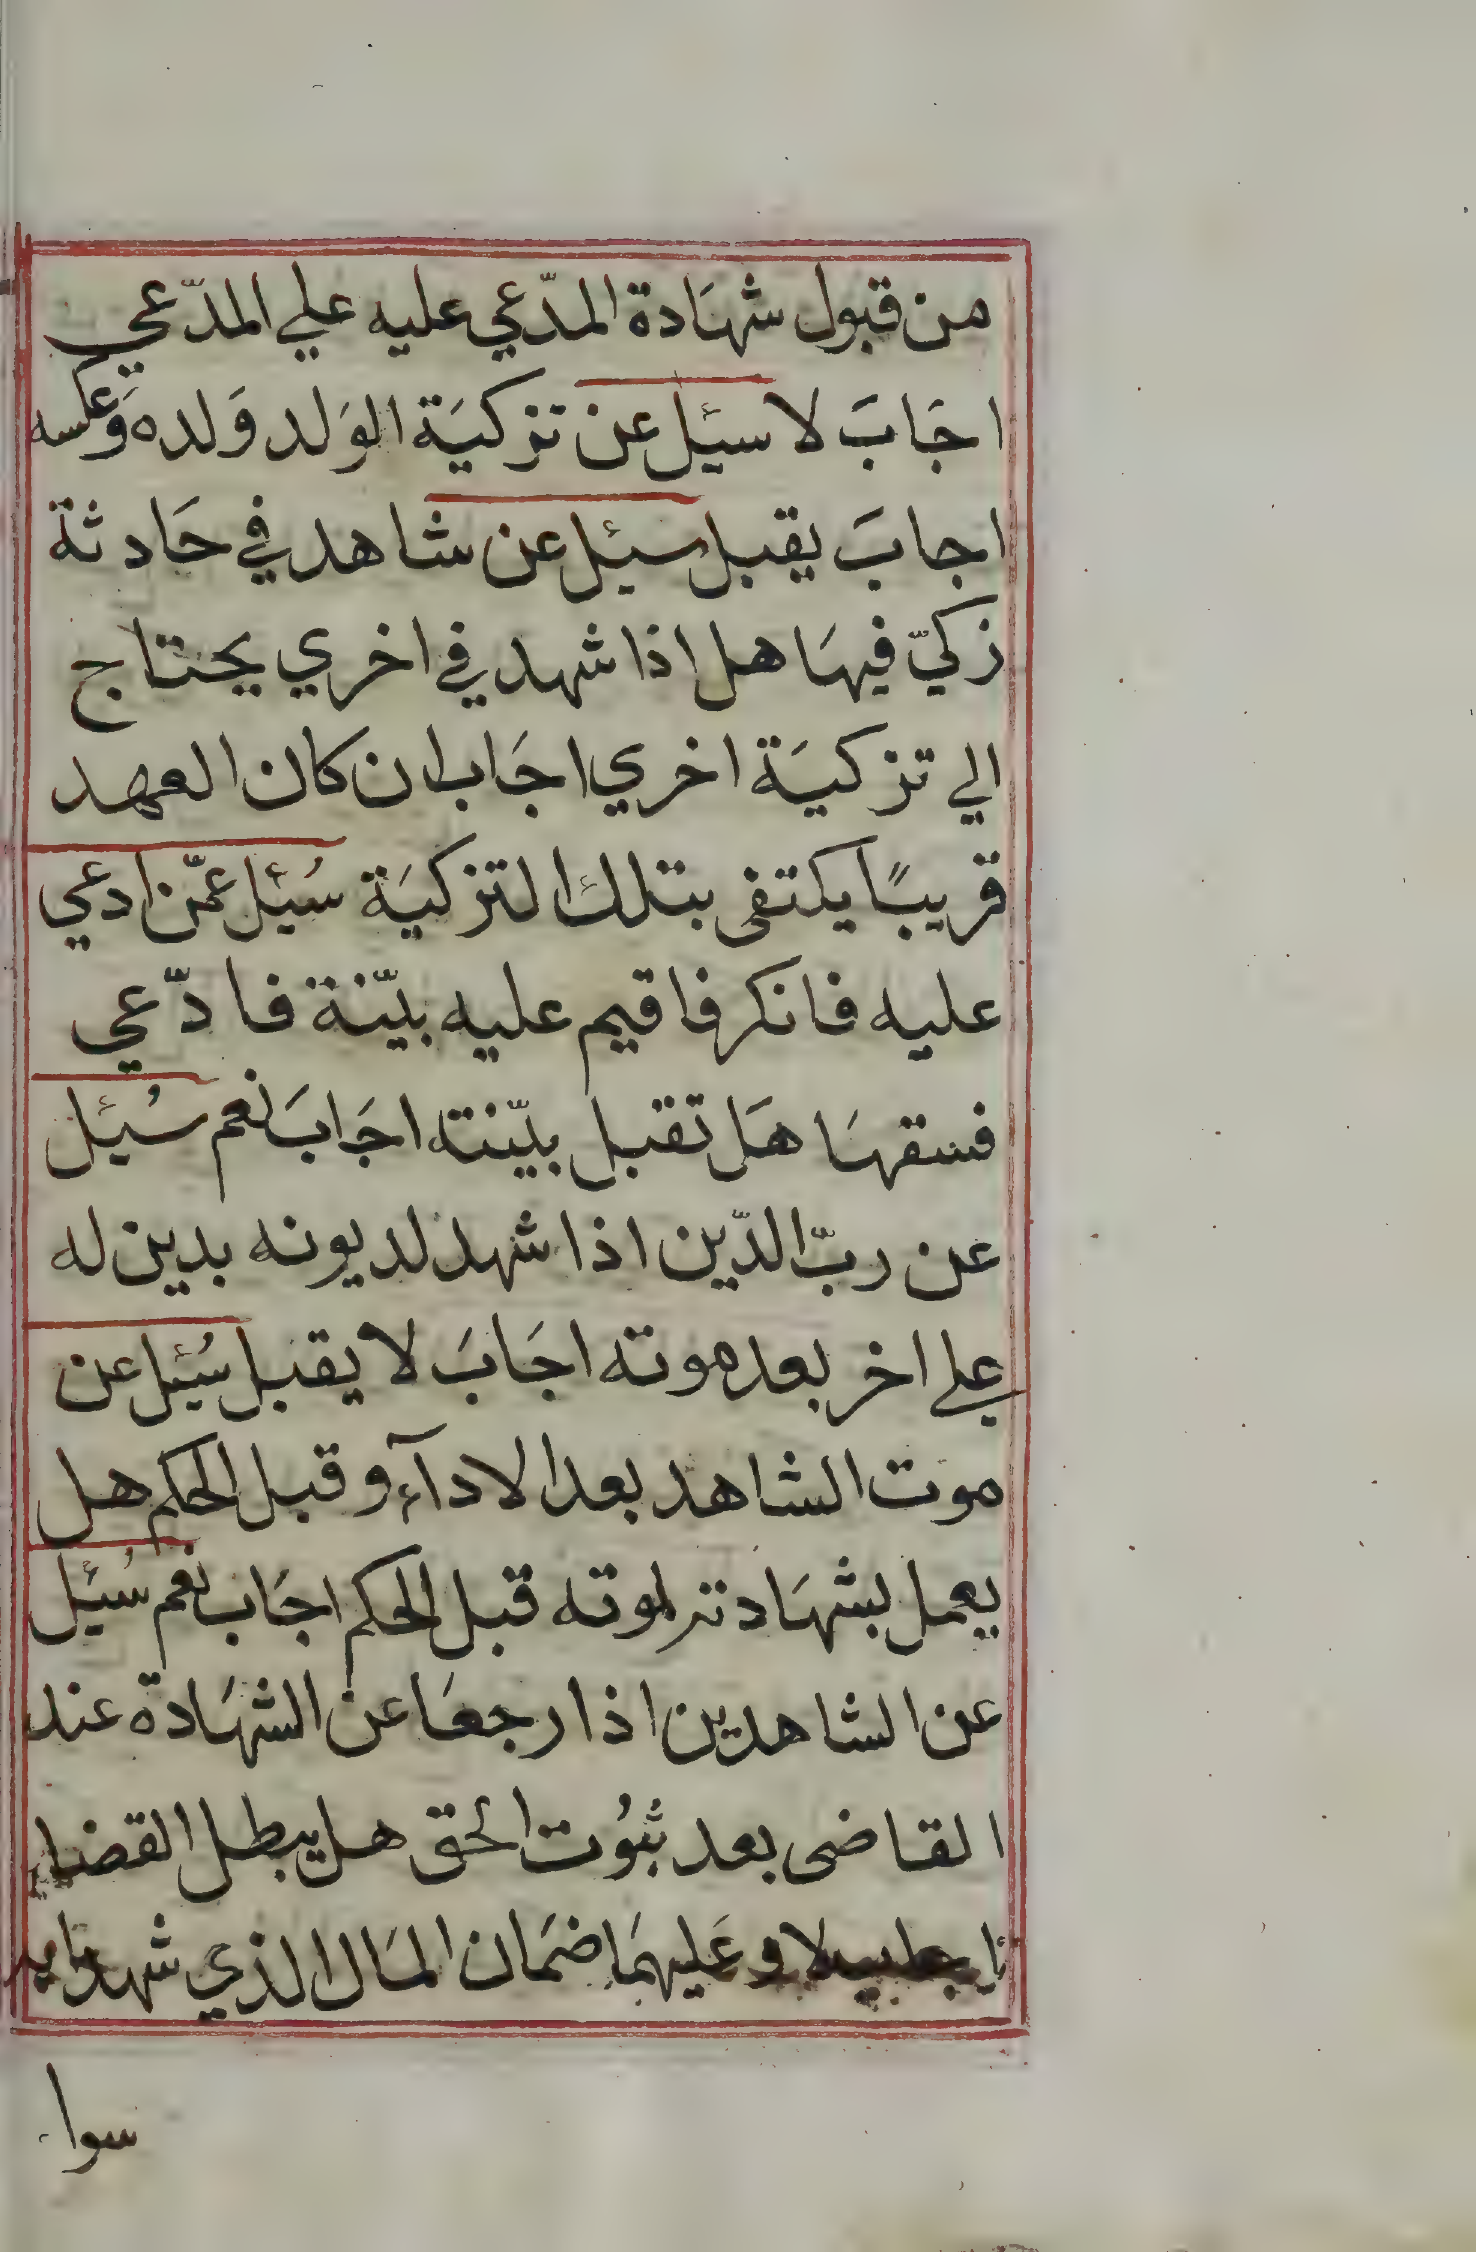 من قبول شهَادة المدّعي عليه علي المدّعي
اجَابَ لا سئل عن تزكيَة الوَلد وَلده وَعكسه
اجابَ يقبل سئل عن شاهد في حَادثة
زكيّ فيهَا هل اذا شهد في اخري يحتاج
الي تزكيَة اخري اجَاب ان كان العهد
قريبًا يكتفى بتلك التزكيَة سُئل عمّن ادعي
عليه فانكر فاقيم عليه بيّنة فادّعي
فسقهَا هَل تقبل بيّنته اجَابَ نعم سُئل
عن ربّ الدّين اذا شهد لديونه بدين له
علي اخر بعد موته اجَابَ لا يقبل سُئل عن
موت الشاهد بعد الادآء وقبل الحكم هل
يعمل بشهَادته لموته قبل الحكم اجَاب نعم سُئل
عن الشاهدين اذا رجعَا عن الشهَادة عند
القاضى بعد ثبُوت الحق هل يبطل القضا
لا وعَليهمَا ضمَان المَال الذي شهدا به
سوا